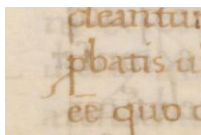 cleantur
pbatis u
ee quo